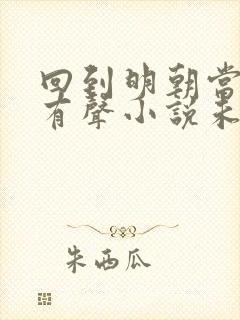 回到明朝當
有聲小說未
朱西瓜